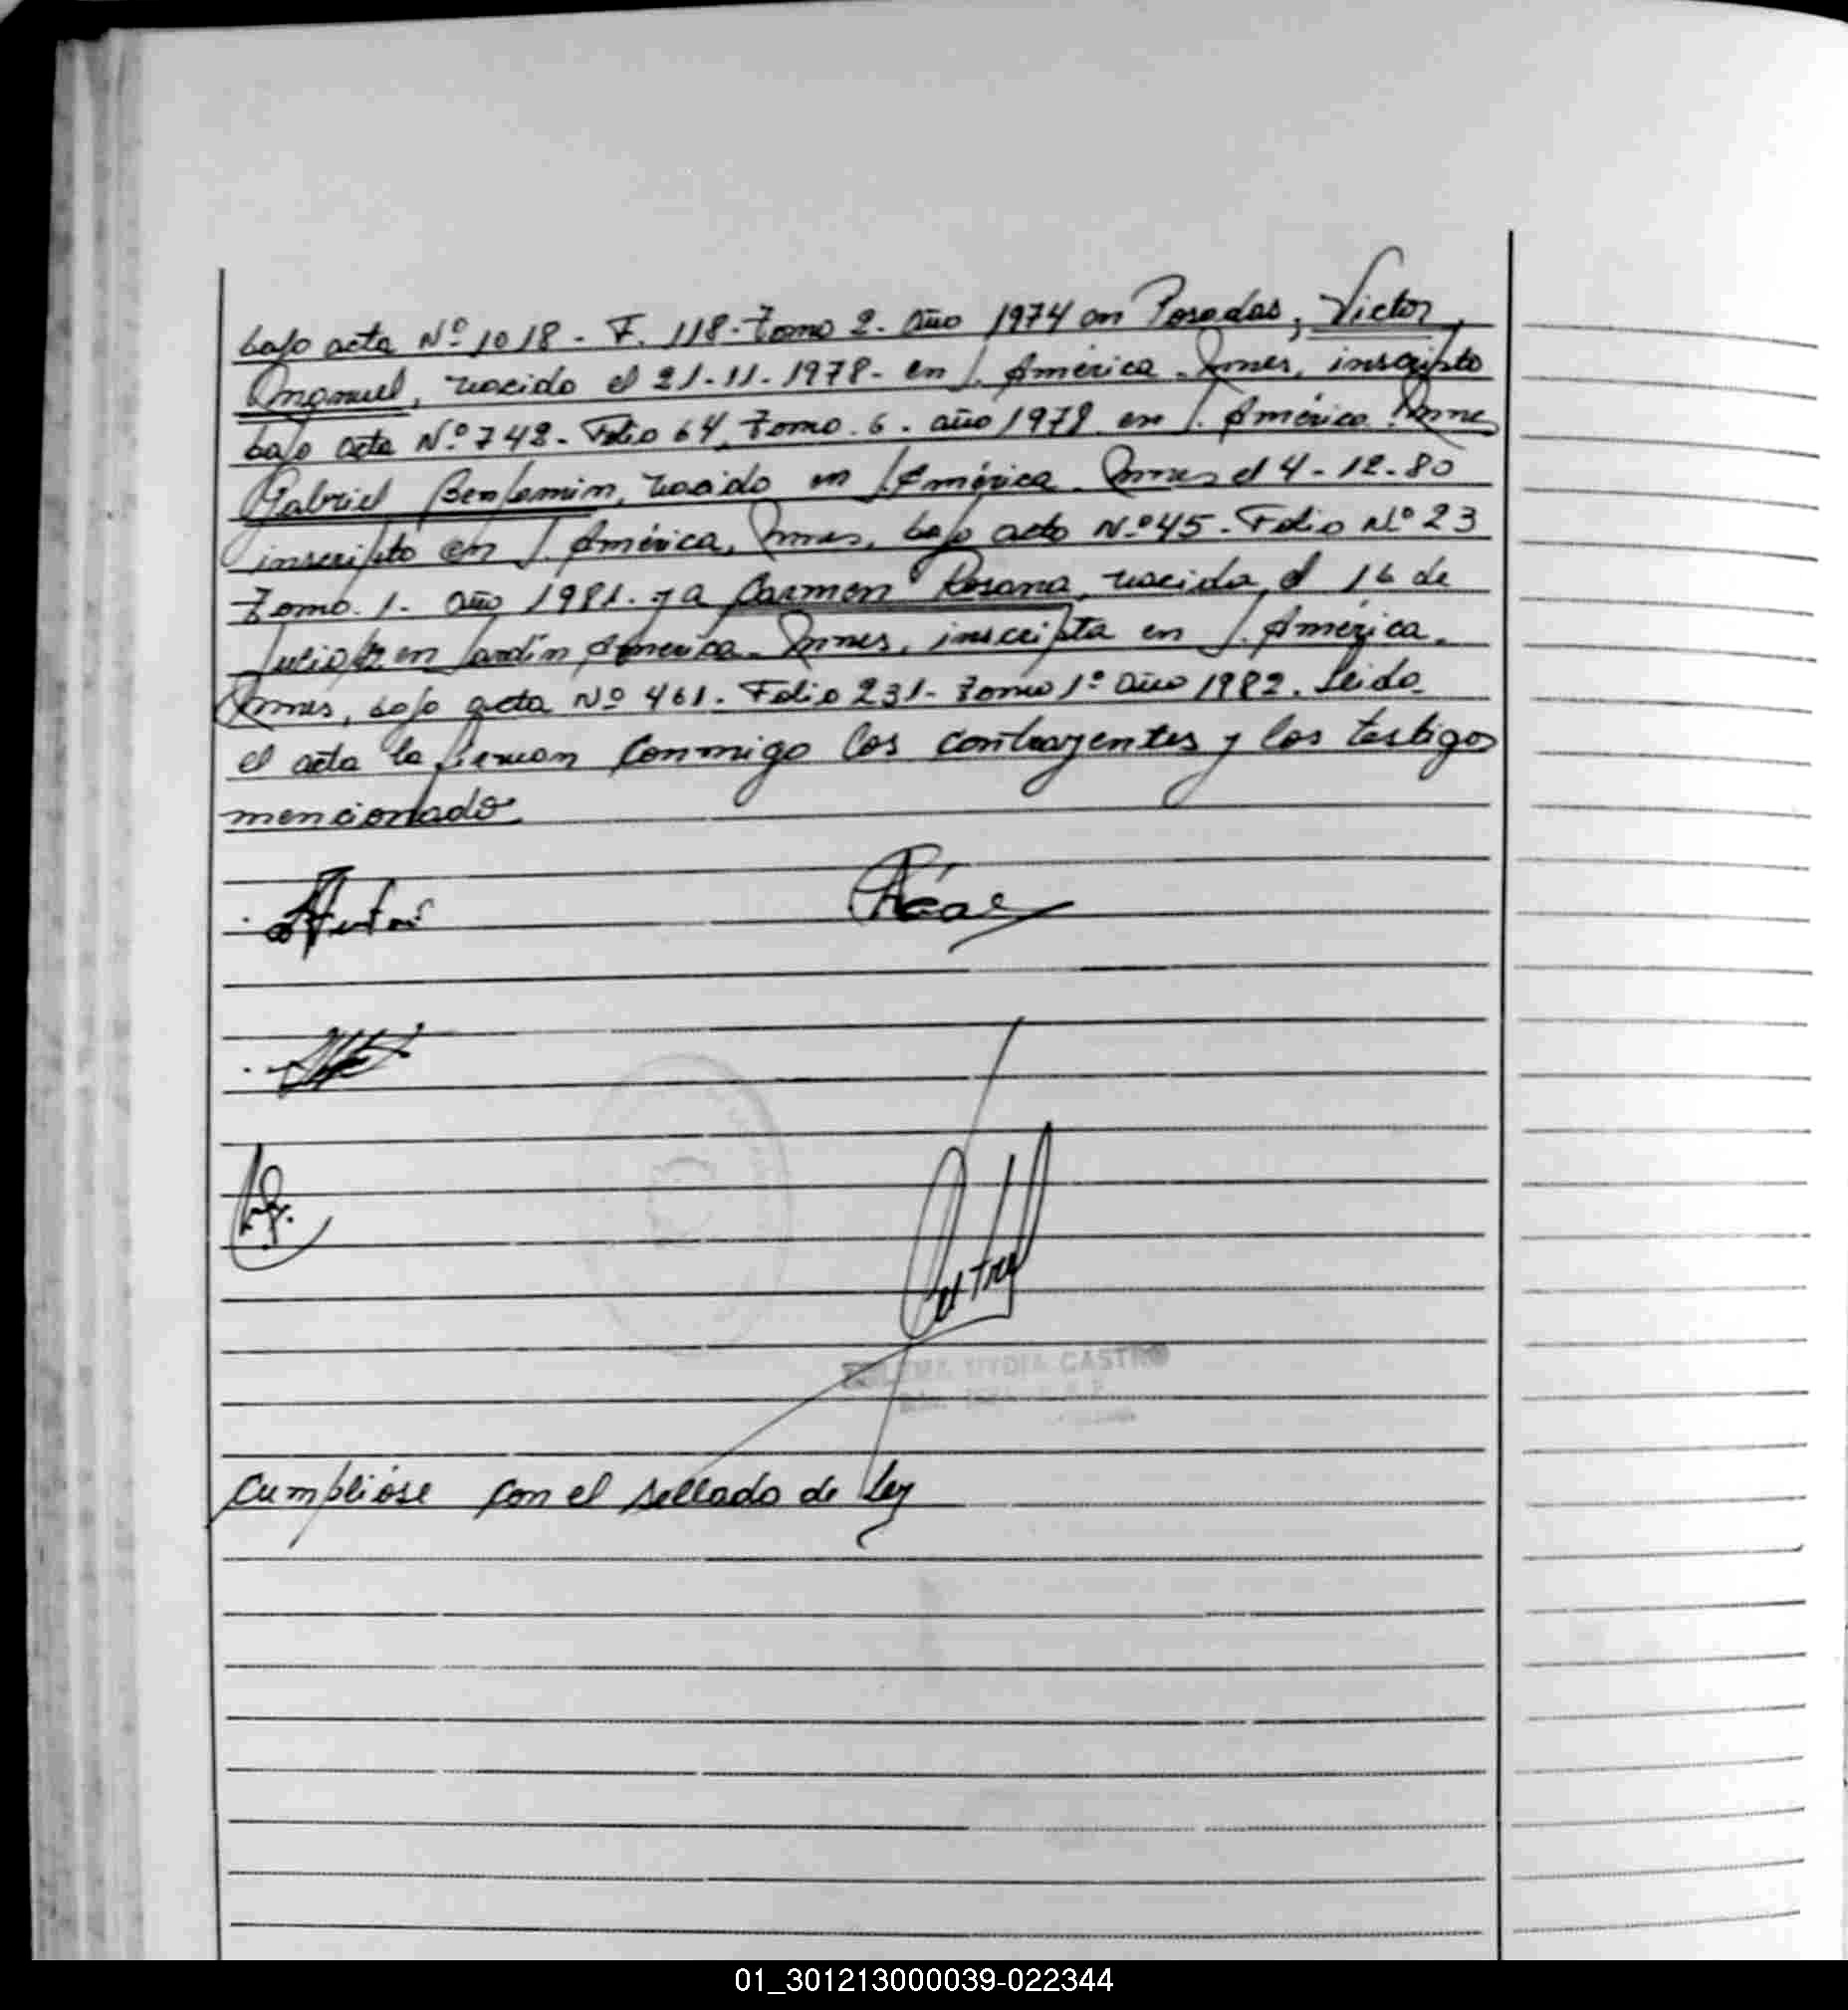 bajo acta Nº 1018 - F. 118 - Tomo 2. Año 1974 en Posadas, Victor
Emanuel, nacido el 21-11-1978- en J. América - Mnes, inscripto
bajo acta Nº 742 - Folio 64, Tomo. 6. año 1978 en J. América. Mnes
Gabriel Benjamin, nacido en J. América. Mnes el 4-12-80
inscripto en J. América, Mnes, bajo acta Nº 45 - Folio Nº 23
Tomo. 1. Año 1981. y a Carmen Rosana, nacida el 16 de
Julio en Jardín América - Mnes, inscripta en J. América.
Mnes, bajo acta Nº 461. Folio 231 - Tomo 1º Año 1982. Leida
el acta la firman conmigo los contrayentes y los testigos
mencionado
NYDIA CASTRO
Cumplióse con el sellado de Ley
01_301213000039-022344